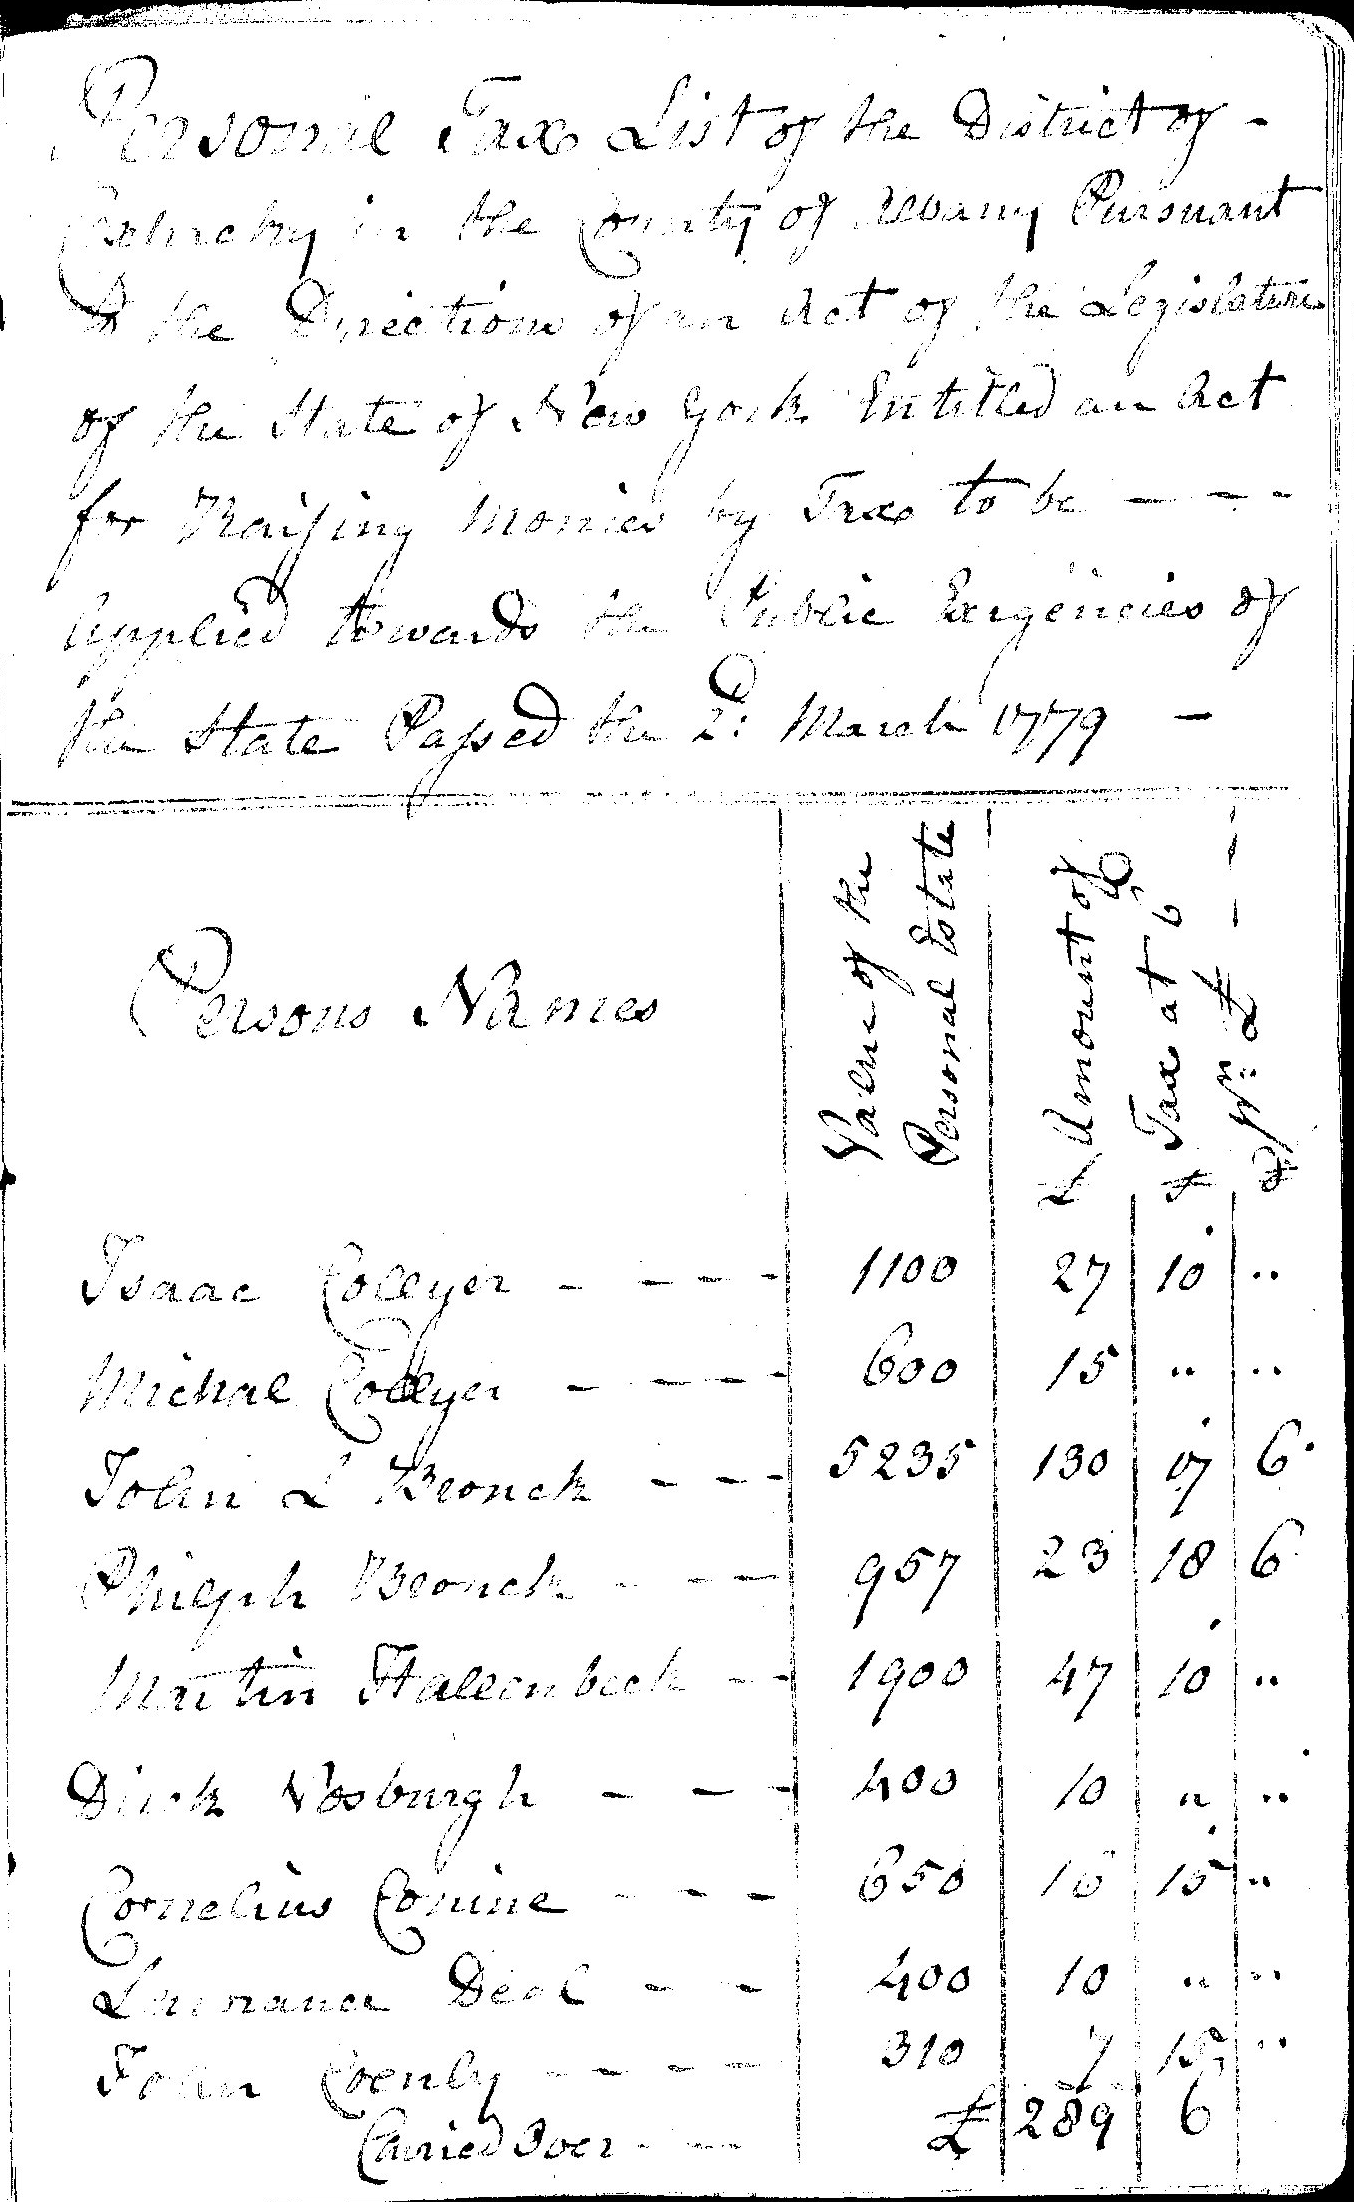 Personal Tax List of the District of -
Coxhucky in the County of Albany Pursuant
to the Directions of an Act of the Legislature
of the State of New York Entitled an Act
for Raising Monies by Tax to be - - -
applied towards the Public Exigencies of
the State Passed the 2d: March 1779 -
Persons Names
Value of the
Personal Estate
Amount of
Tax at 6d
pr: £
£ s d
Isaac Collyer - - - - 1100 27 10 ..
Michal Collyer - - - - 600 15 .. ..
John L Bronck - - - 5235 130 17 6
Philiph Bronck - - - 957 23 18 6
Martin Hallenbeck - - 1900 47 10 ..
Dirck Vosburgh - - - 400 10 .. ..
Cornelius Conine - - - 650 16 15 ..
Lawrance Deal - - 400 10 .. ..
John Coenly - - - - 310 7 15 ..
Carried Over - - £ 289 6